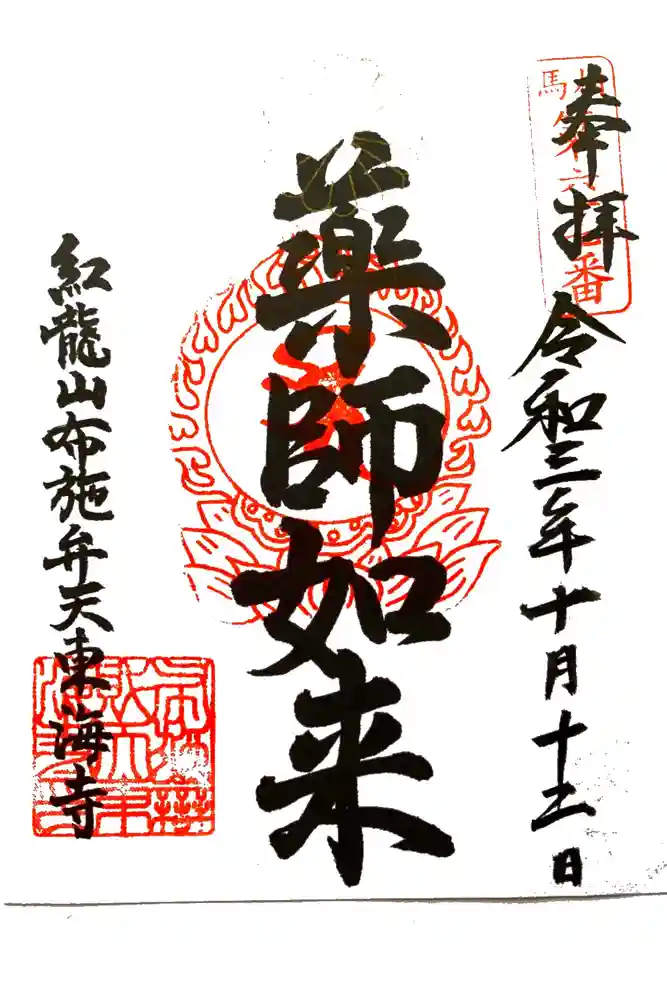 相馬
第六 番
奉拝 令和三年十月十二日
薬師如来
紅龍山布施弁天東海寺